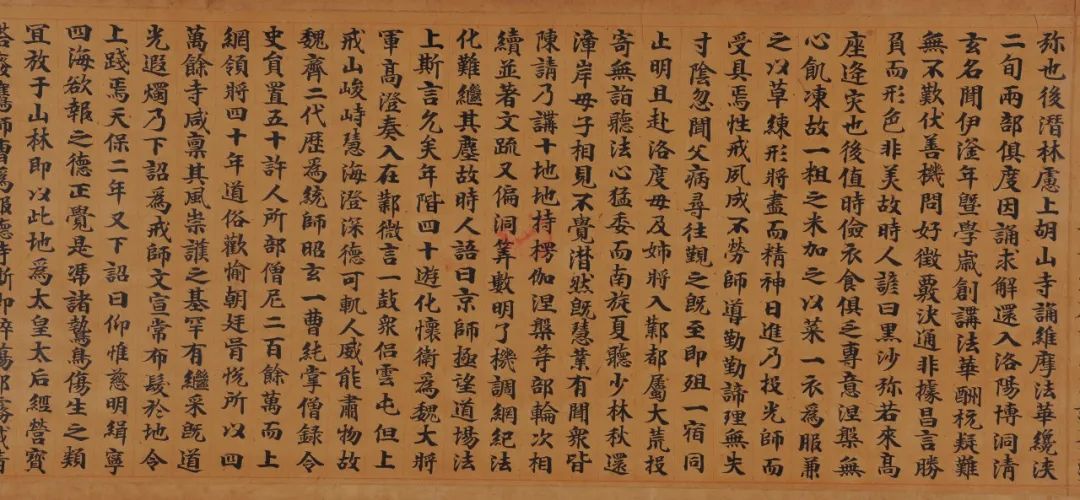 弥也後潜林慮上胡山寺誦維摩法華纔浹
二旬兩部俱度因誦求解還入洛陽博洞清
玄名聞伊滏年暨學歲創講法華酬抗疑難
無不歎伏善機問好徵覈決通非據昌言勝
負而形色非美故時人諺曰黑沙弥若來高
座逢灾也後值時儉衣食俱乏專意涅槃無
心飢凍故一粗之米加之以菜一衣爲服兼
之以草練形將盡而精神日進乃投光師而
受具焉性戒夙成不勞師導勤勤諦理無失
寸陰忽聞父病尋往覲之既至即殂一宿同
止明旦赴洛度母及姉將入鄴都屬大荒投
寄無詣聽法心猛委而南旋夏聽少林秋還
漳岸母子相見不覺潸然既慧業有聞衆皆
陳請乃講十地地持楞伽涅槃等部輪次相
續並著文䟽又偏洞筭數明了機調綱紀法
化難繼其塵故時人語曰京師極望道場法
上斯言允矣年階四十遊化懷衛爲魏大將
軍高澄奏入在鄴微言一鼓衆侣雲屯但上
戒山峻峙慧海澄深德可軌人威能肅物故
魏齊二代歴爲統師昭玄一曹純掌僧録令
史負置五十許人所部僧尼二百餘萬而上
網領將四十年道俗歡愉朝廷胥悅所以四
萬餘寺咸禀其風崇護之基罕有繼采既道
光遐燭乃下詔爲戒師文宣常布髮於地令
上踐焉天保二年又下詔曰仰惟慈明緝寧
四海欲報之德正覺是馮諸鷙鳥傷生之類
冝放于山林即以此地爲太皇太后經營寳
塔癈鷹師曹爲報德寺